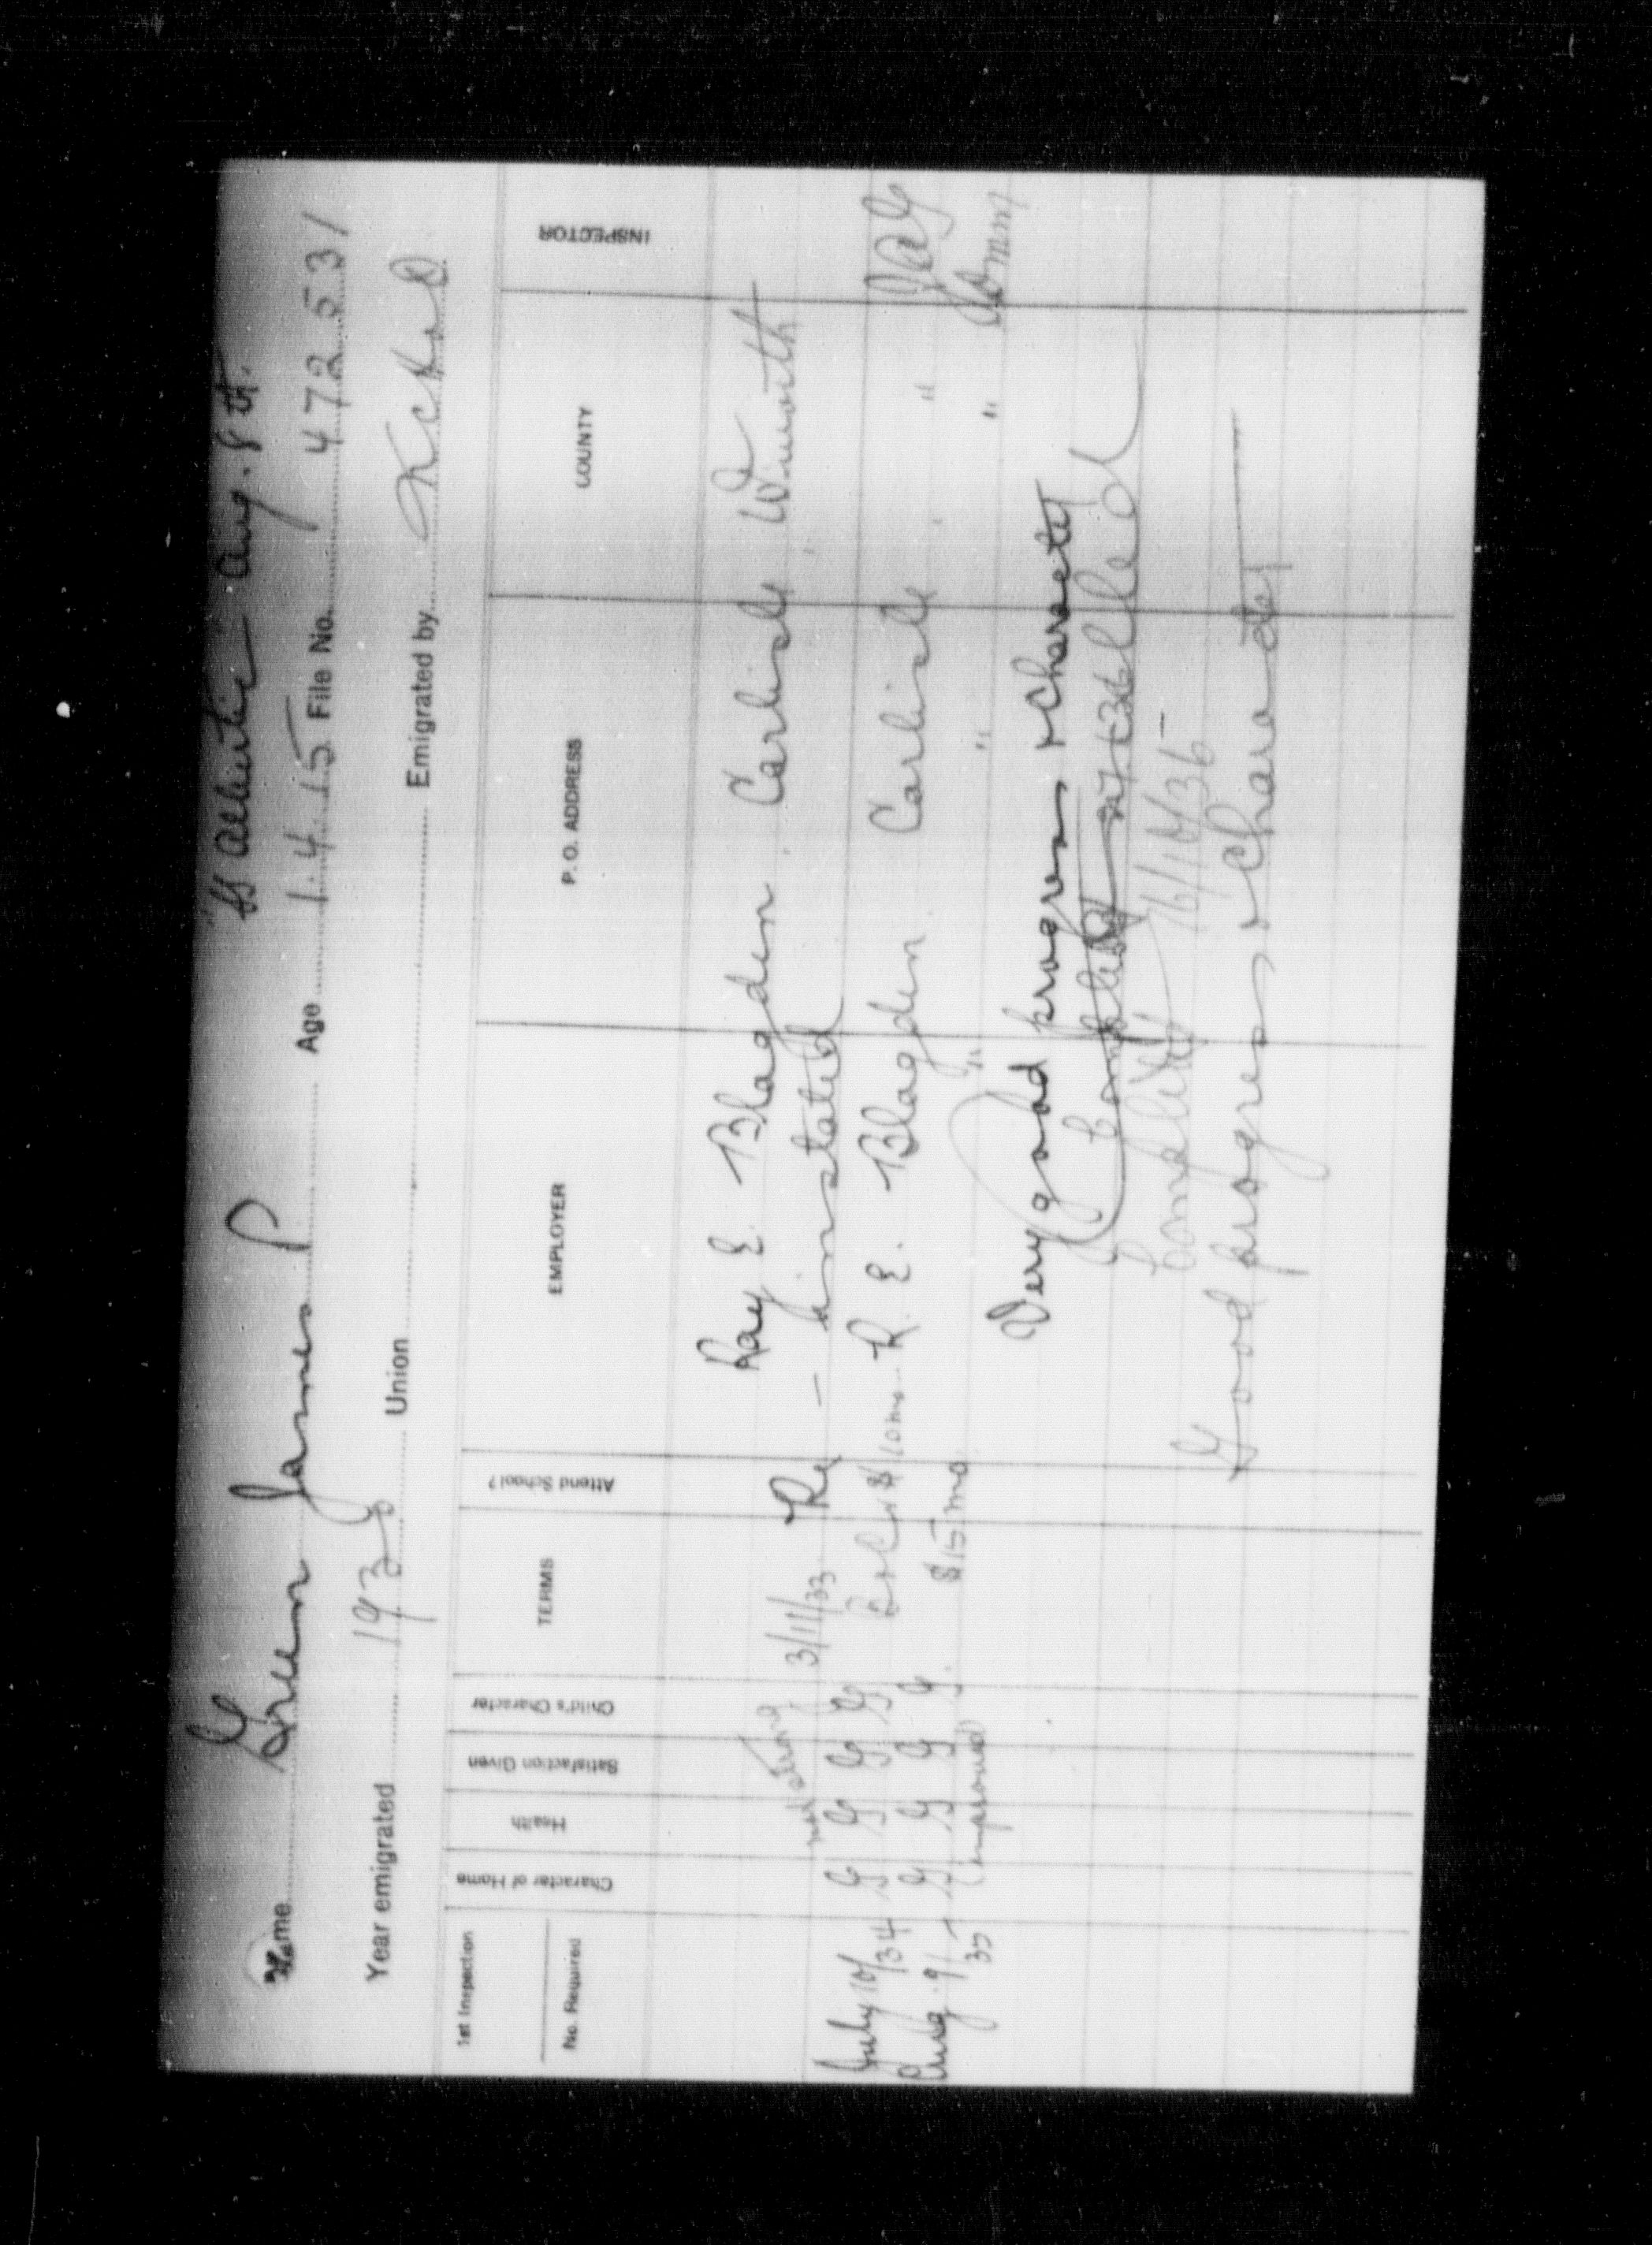 SS Albertic Aug. 8th.
Name Green James P Age 14 15 File No. 472531
Year emigrated 193 Union Emigrated by
1st Inspection
No. Required
Character of Home
Health
Satisfaction Given
Child's Character
TERMS
Attend School?
EMPLOYER
P. O. ADDRESS
COUNTY
INSPECTOR
Ray E Blagden Carlisle W'mouth
not strong
3/11/33 Re - instated
July 10/34 G G G G $10 mo R. E. Blagden Carlisle "
Aug. 9/35 G G G G $15 mo " " "
(improved)
Very good progress & Character
Completed
Completed 16/10/36
Good progress & Character